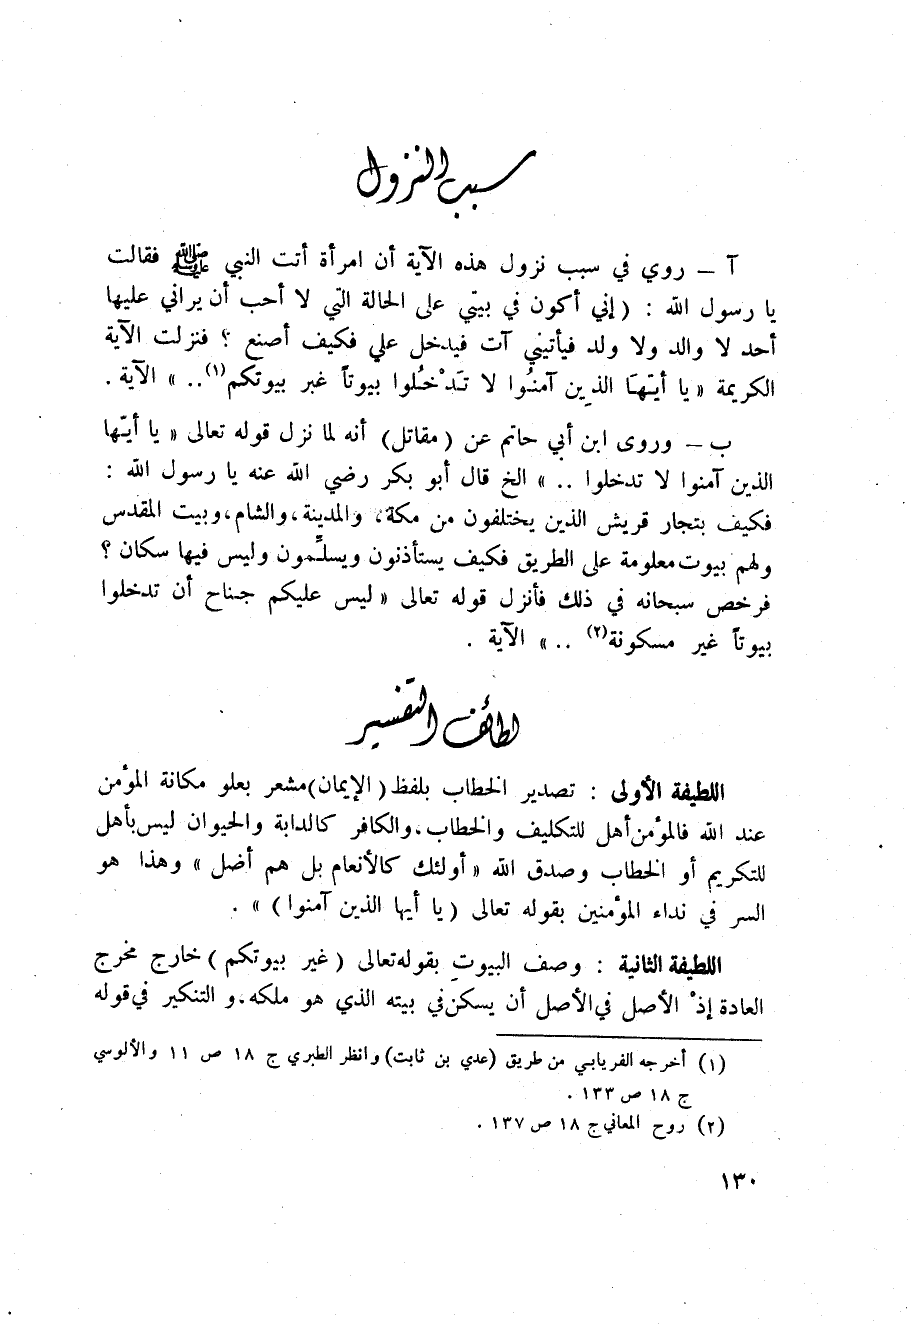 سبب النزول
آ – روي في سبب نزول هذه الآية أن امرأة أتت النبي ﷺ فقالت
يا رسول الله : (إني أكون في بيتي على الحالة التي لا أحب أن يراني عليها
أحد لا والد ولا ولد فيأتيني آت فيدخل علي فكيف أصنع ؟ فنزلت الآية
الكريمة « يا أيّهَا الذِين آمنُوا لا تَدْخُلوا بيوتاً غير بيوتكم(١).. » الآية .
ب – وروى ابن أبي حاتم عن (مقاتل) أنه لما نزل قوله تعالى « يا أيّها
الذين آمنوا لا تدخلوا .. » الخ قال أبو بكر رضي الله عنه يا رسول الله :
فكيف بتجار قريش الذين يختلفون من مكة، والمدينة، والشام، وبيت المقدس
ولهم بيوت معلومة على الطريق فكيف يستأذنون ويسلّمون وليس فيها سكان ؟
فرخص سبحانه في ذلك فأنزل قوله تعالى « ليس عليكم جناح أن تدخلوا
بيوتاً غير مسكونة(٢) .. » الآية .
لطائف التفسير
اللطيفة الأولى : تصدير الخطاب بلفظ (الإيمان) مشعر بعلو مكانة المؤمن
عند الله فالمؤمن أهل للتكليف والخطاب، والكافر كالدابة والحيوان ليس بأهل
للتكريم أو الخطاب وصدق الله « أولئك كالأنعام بل هم أضل » وهذا هو
السر في نداء المؤمنين بقوله تعالى (يا أيها الذين آمنوا) » .
اللطيفة الثانية : وصف البيوتِ بقوله تعالى (غير بيوتكم) خارج مخرج
العادة إذْ الأصل في الأصل أن يسكن في بيته الذي هو ملكه، و التنكير في قوله
(١) أخرجه الفريابي من طريق (عدي بن ثابت) وانظر الطبري ج ١٨ ص ١١ والألوسي
ج ١٨ ص ١٣٣ .
(٢) روح المعاني ج ١٨ ص ١٣٧ .
١٣٠